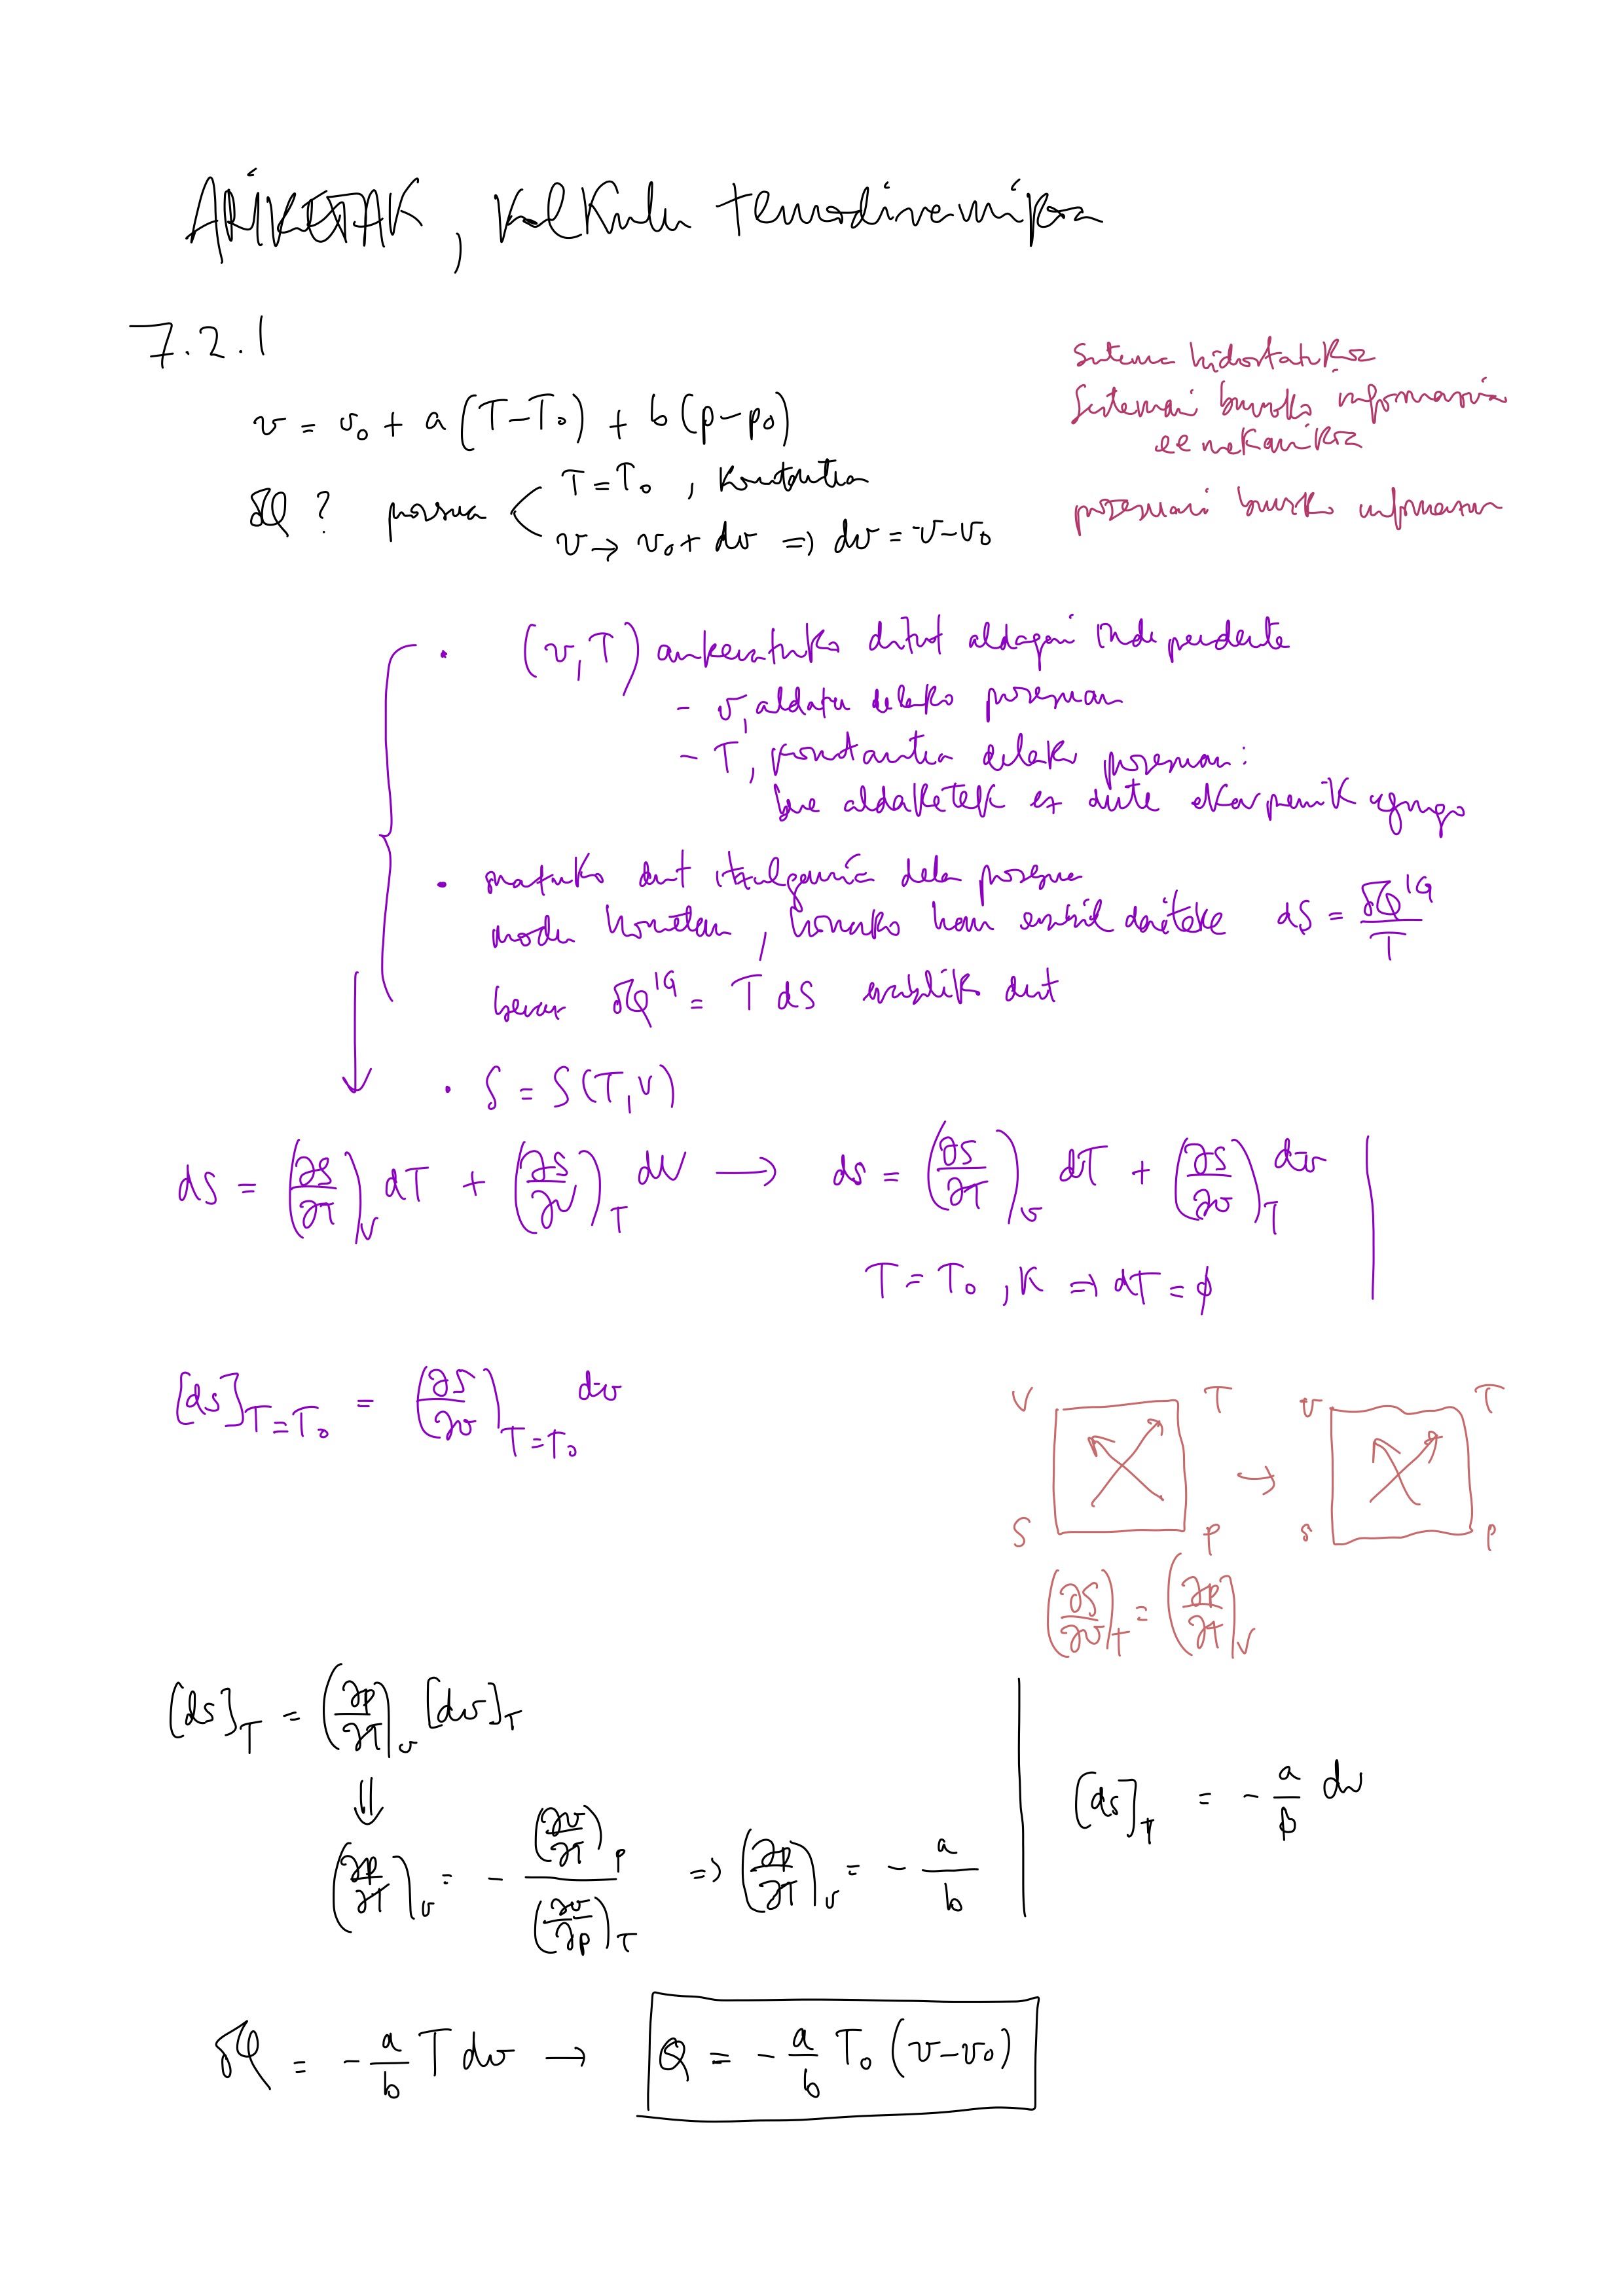 ARIKETAK, kalkulu termodinamikoa
7.2.1
v = v₀ + a(T-T₀) + b(p-p₀)
δQ ? prozesua < T=T₀, konstantea
v → v₀ + dv ⇒ dv = v-v₀
Sistema hidrostatikoa
Sistemari buruzko informazioa
ez mekanikoa
prozesuari buruzko informazioa
• (v,T) aukeratuko ditut aldagai independente
- v, aldatu delako prozesuan
- T, konstantea delako prozesuan:
bere aldaketek ez dute ekarpenik egingo
• onartuko dut itzulgarria dela prozesua
modu honetan, honako hau erabil daiteke dS = δQ^IG / T
beraz δQ^IG = T dS erabiliko dut
• S = S(T,V)
dS = (∂S/∂T)_V dT + (∂S/∂V)_T dV → ds = (∂s/∂T)_v dT + (∂s/∂v)_T dv
T = T₀, K ⇒ dT = ϕ
[ds]_{T=T₀} = (∂s/∂v)_{T=T₀} dv
V T → v T
S P s p
(∂S/∂v)_T = (∂p/∂T)_V
[ds]_T = (∂p/∂T)_v [dv]_T
⇓
(∂p/∂T)_v = - (∂v/∂T)_p / (∂v/∂p)_T ⇒ (∂p/∂T)_v = - a/b
[ds]_T = - a/b dv
δQ = - a/b T dv → Q = - a/b T₀ (v-v₀)